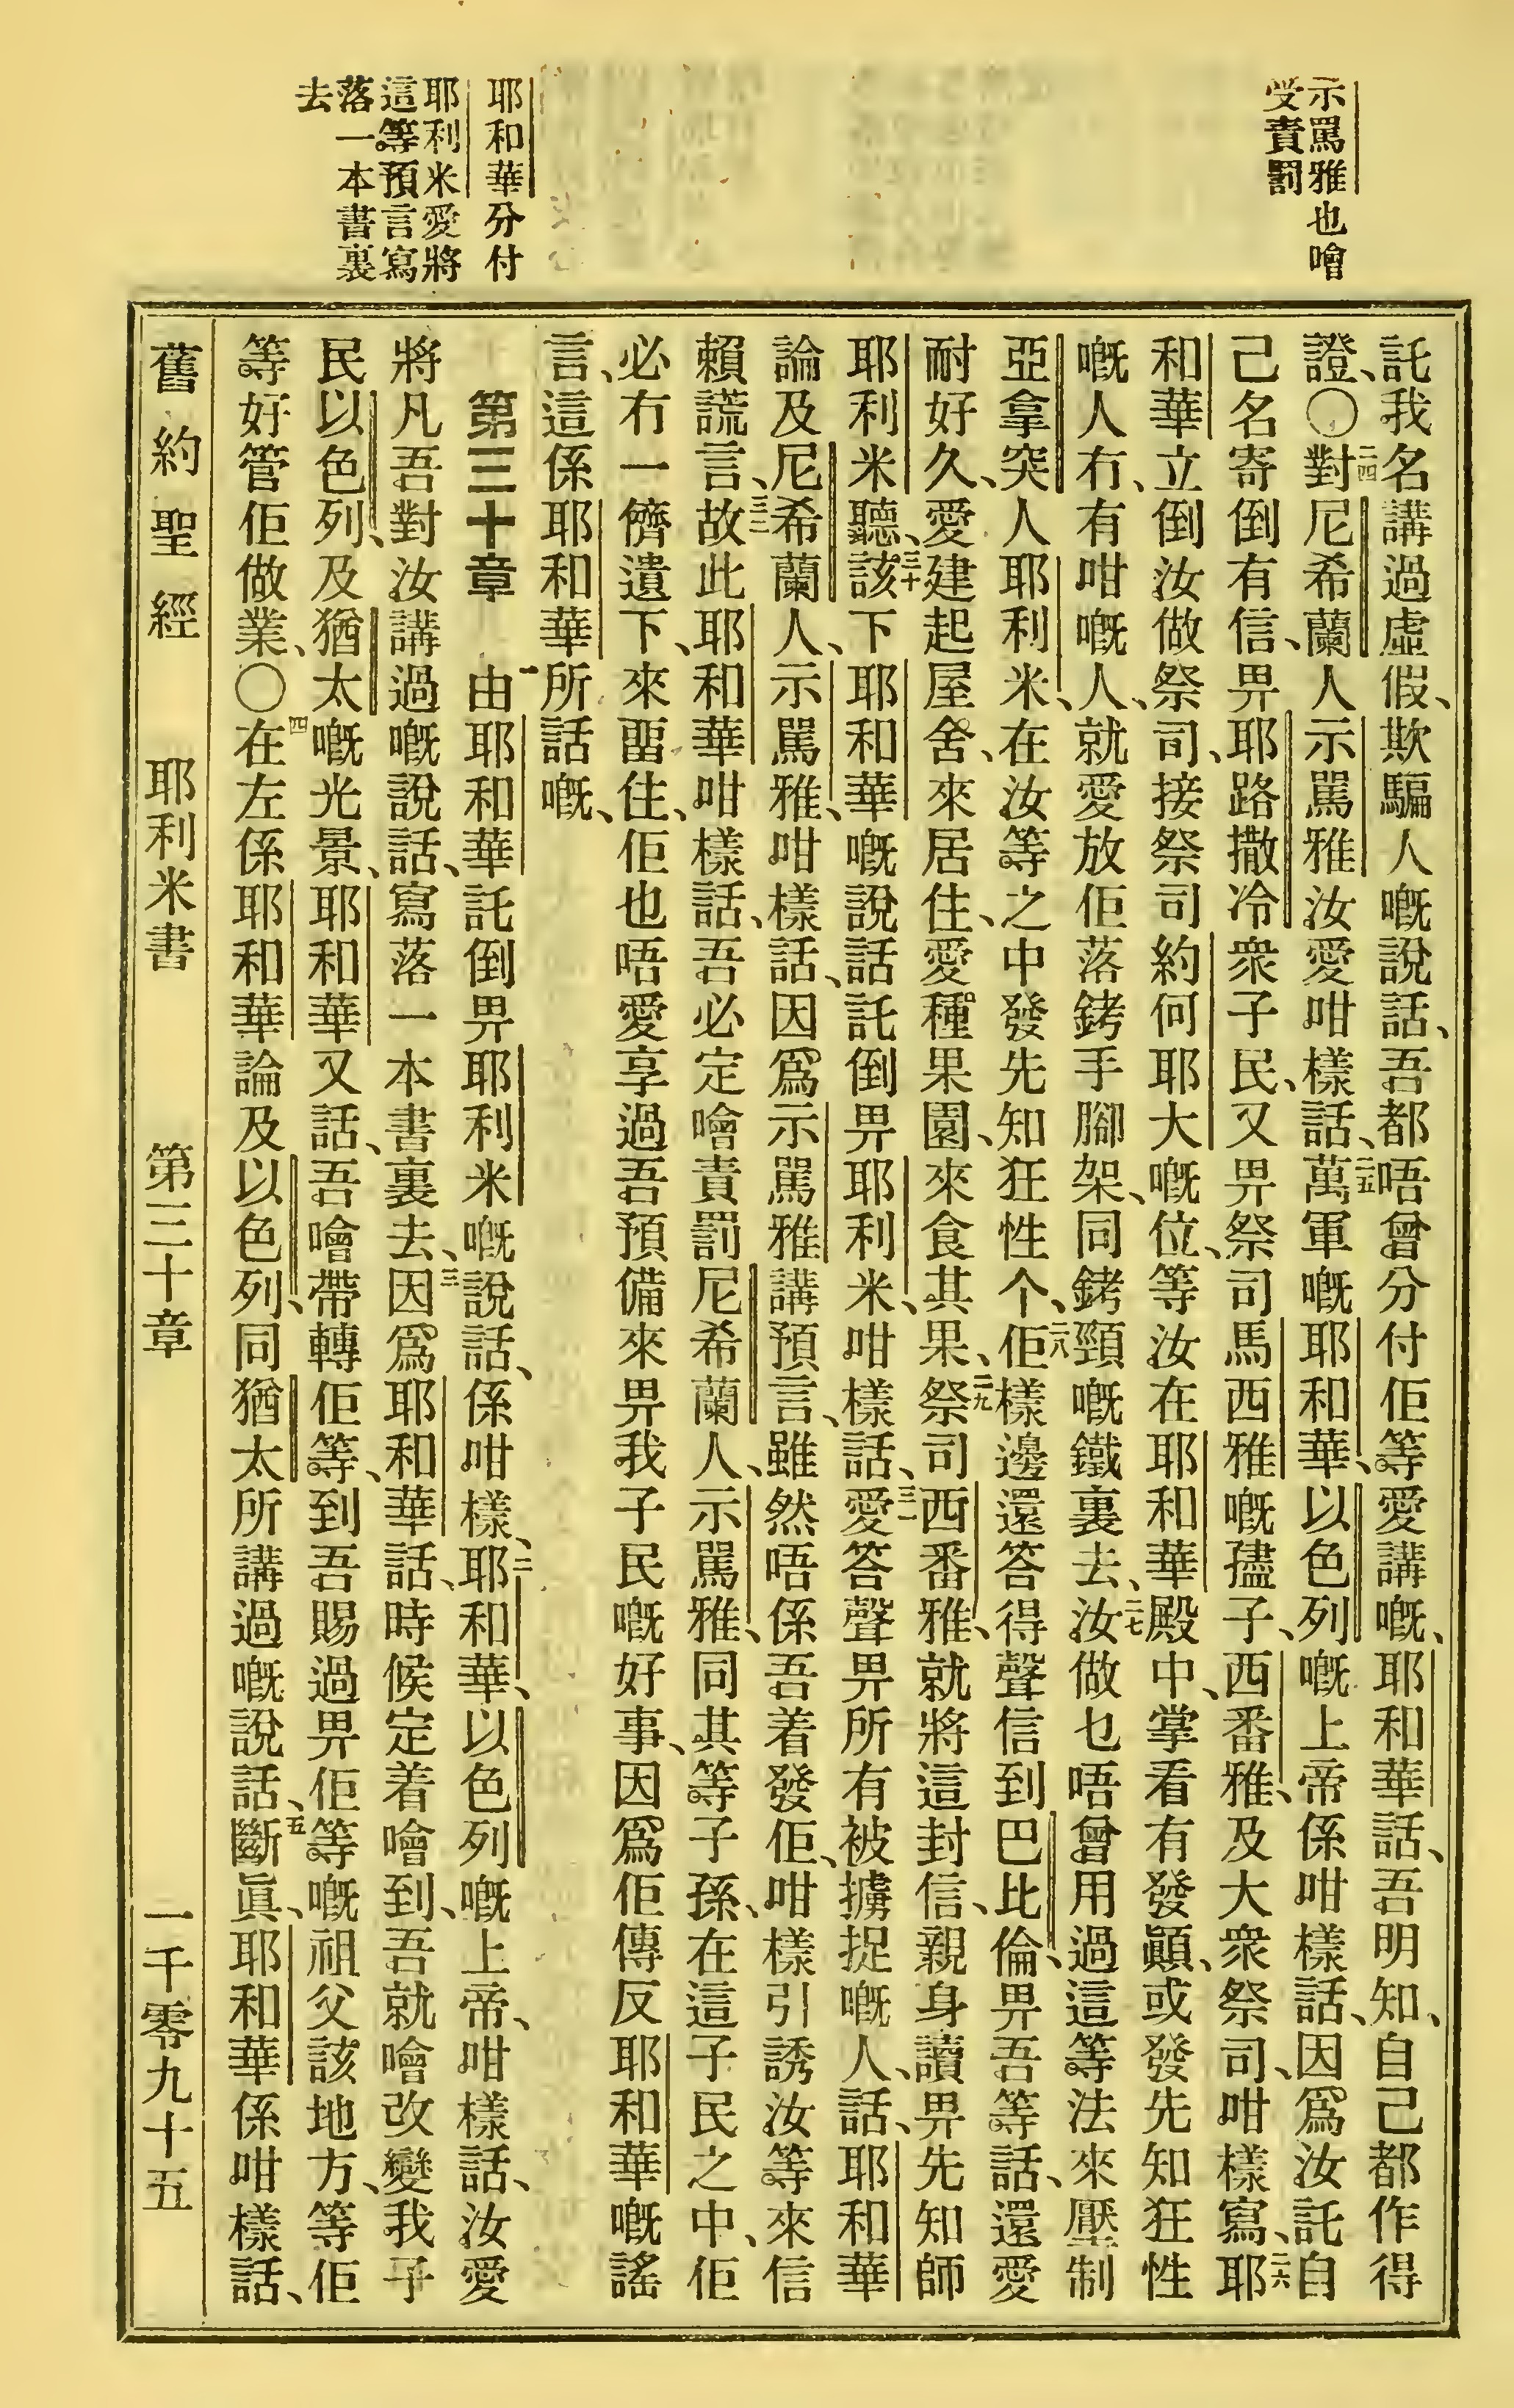 示罵雅也噲
受責罰
耶和華分付
耶利米愛將
這等預言寫
落一本書裏
去
託我名講過虛假、欺騙人嘅說話、吾都唔曾分付佢等愛講嘅、耶和華話、吾明知、自己都作得
證、〇二四對尼希蘭人示罵雅汝愛咁樣話、二五萬軍嘅耶和華、以色列嘅上帝係咁樣話、因爲汝託自
己名寄倒有信、畀耶路撒冷衆子民、又畀祭司馬西雅嘅孻子、西番雅、及大衆祭司、咁樣寫、二六耶
和華立倒汝做祭司、接祭司約何耶大嘅位、等汝在耶和華殿中、掌看有發顚、或發先知狂性
嘅人冇、有咁嘅人、就愛放佢落銬手腳架、同銬頸嘅鐵裏去、二七汝做乜唔曾用過這等法來壓制
亞拿突人耶利米、在汝等之中發先知狂性个、二八佢樣邊還答得聲信到巴比倫、畀吾等話、還愛
耐好久、愛建起屋舍、來居住、愛種果園、來食其果、二九祭司西番雅、就將這封信、親身讀畀先知師
耶利米聽、三十該下耶和華嘅說話託倒畀耶利米、咁樣話、三一愛答聲畀所有被擄捉嘅人、話、耶和華
論及尼希蘭人、示罵雅、咁樣話、因爲示罵雅講預言、雖然唔係吾着發佢、咁樣引誘汝等來信
賴謊言、三二故此耶和華咁樣話、吾必定噲責罰尼希蘭人、示罵雅、同其等子孫、在這子民之中、佢
必冇一儕遺下、來畱住、佢也唔愛享過吾預備來畀我子民嘅好事、因爲佢傳反耶和華嘅謠
言、這係耶和華所話嘅、
第三十章　一由耶和華託倒畀耶利米嘅說話、係咁樣、二耶和華、以色列嘅上帝、咁樣話、汝愛
將凡吾對汝講過嘅說話、寫落一本書裏去、三因爲耶和華話、時候定着噲到、吾就噲改變我子
民以色列、及猶太嘅光景、耶和華又話、吾噲帶轉佢等、到吾賜過畀佢等嘅祖父該地方、等佢
等好管佢做業、〇四在左係耶和華論及以色列、同猶太所講過嘅說話、五斷眞、耶和華係咁樣話、
舊約聖經　耶利米書　第三十章　一千零九十五